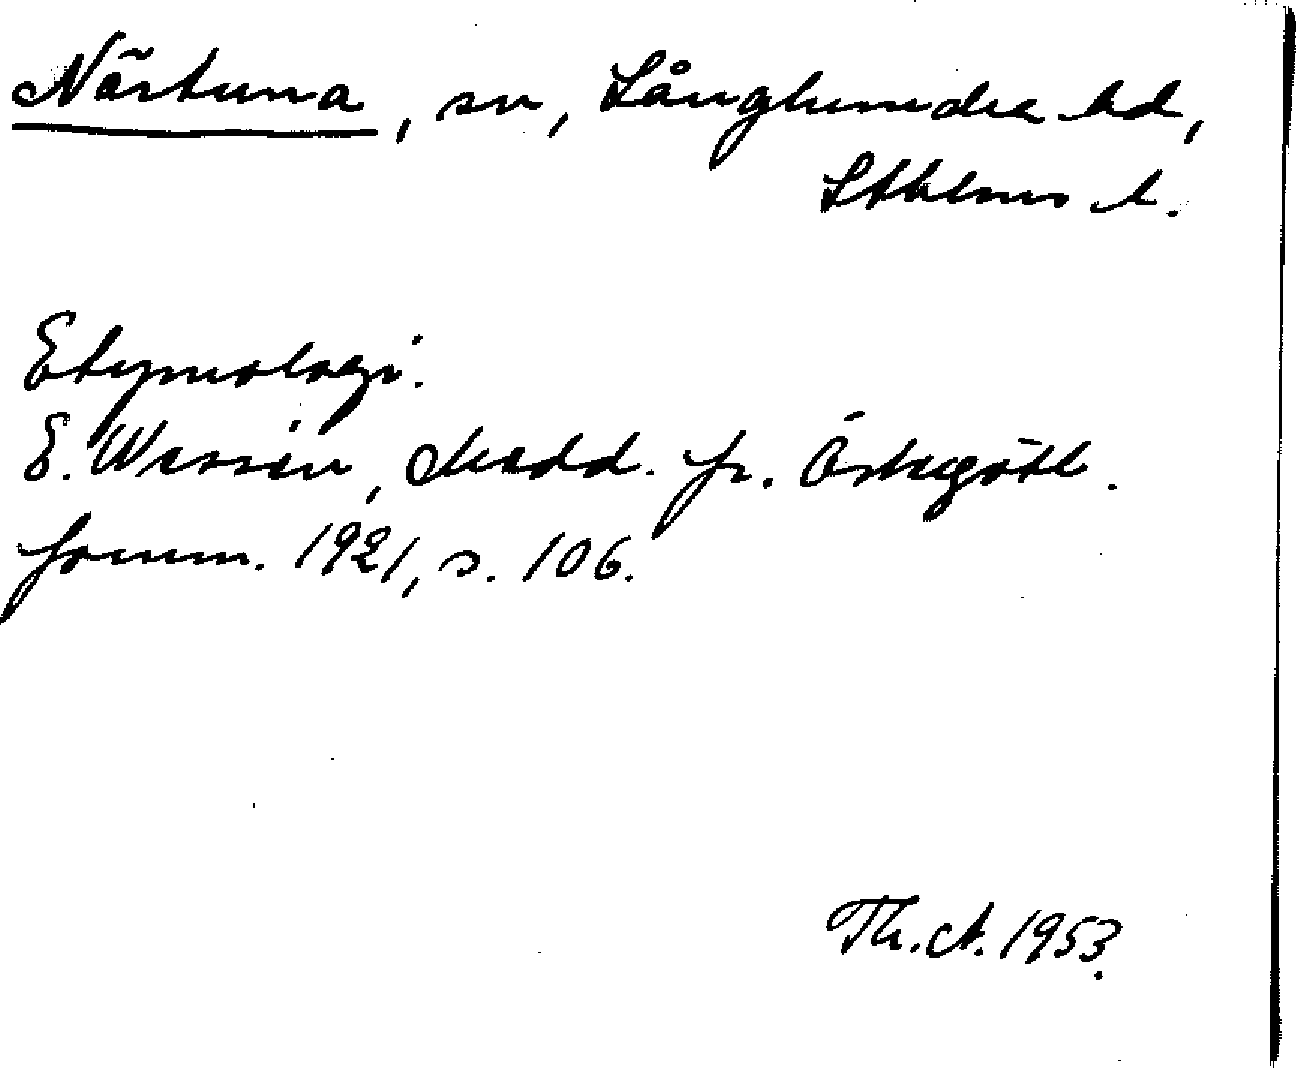 Närtuna, sn, Långhundra hd,
Sthlms l.
Etymologi.
E. Wessén, Medd. fr. Östergötl.
fornm. 1921, s. 106.
Th. A. 1953.